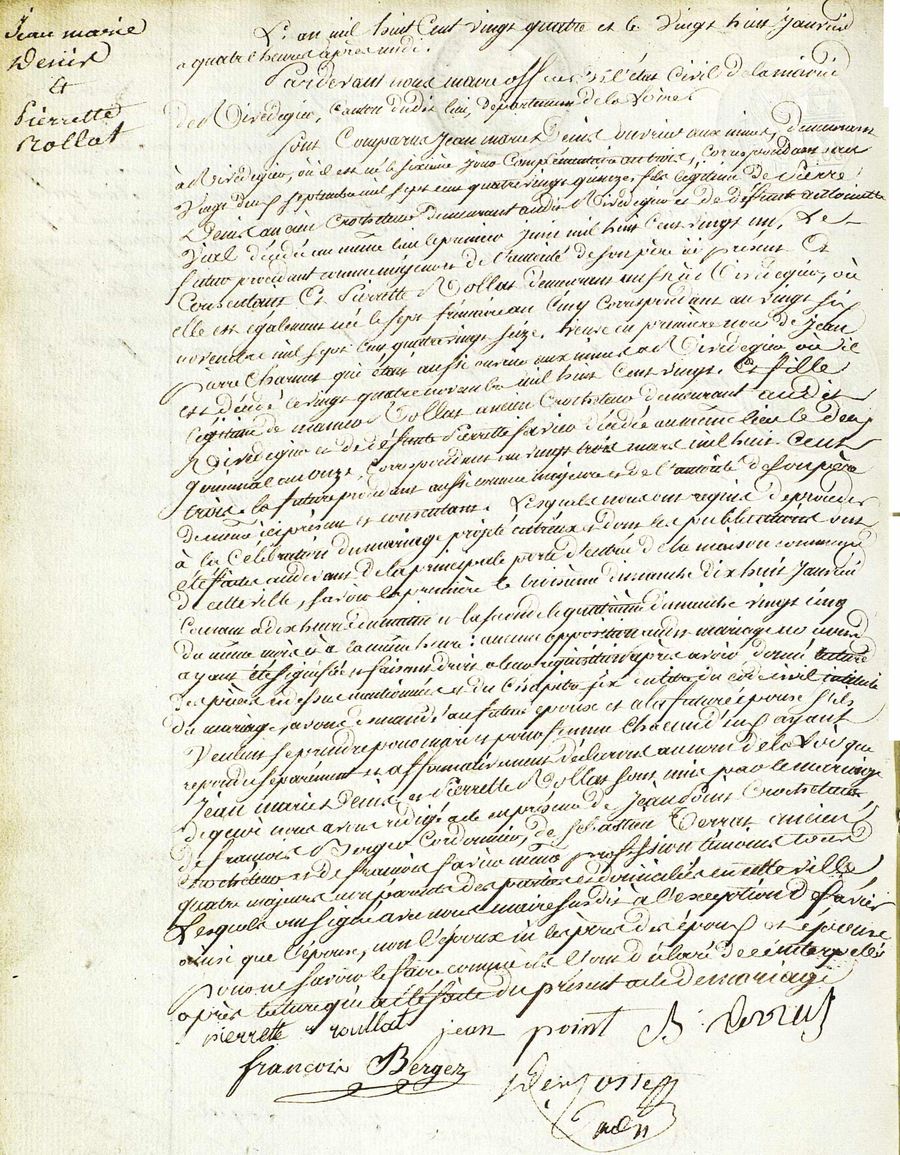 Jean marie
Denis
&
Pierrette
Rollat
L'an mil huit cent vingt quatre et le vingt huit Janvier
a quatre heures après midi.
Pardevant nous maire officier de l'état Civil de la mairie
de Rivedegier, Canton dudit lieu, departement de la Loire
Sont Comparus Jean marie Denis ouvrier aux mines, demeurant
à Rivedegier, où il est né le sixième jour Complémentaire an trois, Correspondant au
vingt deux septembre mil sept cent quatre vingt quinze, fils légitime de Pierre
Denis ancien Crocheteur demeurant audit Rivedegier et de défunte antoinette
décédée au même lieu le premier Juin mil huit Cent vingt un, Le
futur procédant comme majeur et de l'autorité de son père ici présent Et
Consentant Et Pierrette Rollat demeurant aussi à Rivedegier, où
elle est également née le sept frimaire an Cinq Correspondant au vingt six
novembre mil sept cent quatre vingt seize. veuve en première nôce de Jean
Pierre Charmet qui était aussi ouvrier aux mines a Rivedegier où il
est décédé le vingt quatre novembre mil huit Cent vingt. Et fille
légitime de Rollat ancien Crocheteur demeurant audit
Rivedegier et de défunte Pierrette favier décédée au même lieu le deux
germinal an onze, Correspondant au vingt trois mars mil huit Cent
trois. la future procédant aussi comme majeure et de l'autorité de son père
ici présent et consentant. Lesquels nous ont requis de procéder
à la Célébration du mariage projeté entr'eux et dont les publications ont
été faites audevant de la principale porte d'entrée de la maison commune
de cette ville, savoir la première le troisième dimanche dix huit Janvier
Courant a dix heures du matin et la seconde le quatrième dimanche vingt cinq
du même mois à la même heure: aucune opposition audit mariage ne nous
ayant été signifiée et faisant droit a leur réquisition après avoir donné lecture
des pièces ci dessus mentionnées et du Chapitre six du titre du code civil intitulé
du mariage, avons demandé au futur époux et a la future épouse s'ils
veulent se prendre pour mari et pour femme Chacun d'eux ayant
repondu séparément et affirmativement déclarons au nom de la Loi que
Jean marie Denis et Pierrette Rollat sont unis par le mariage
de quoi nous avons rédigé acte en présence de Jean Point Crocheteur
de francois Berger Cordonnier, de Sébastien Verrut ancien
Crocheteur et de francois favier même profession témoins tous
quatre majeurs non parents des parties et domiciliés en cette ville
Lesquels ont signé avec nous maire susdit à l'exception de favier
ainsi que l'épouse, non l'époux ni les pères des époux et épouse
pour ne savoir le faire comme ils l'ont déclaré de ce interpellés
après lecture qui a été faite du présent acte de mariage
Pierrette roullat jean point
francois Berger